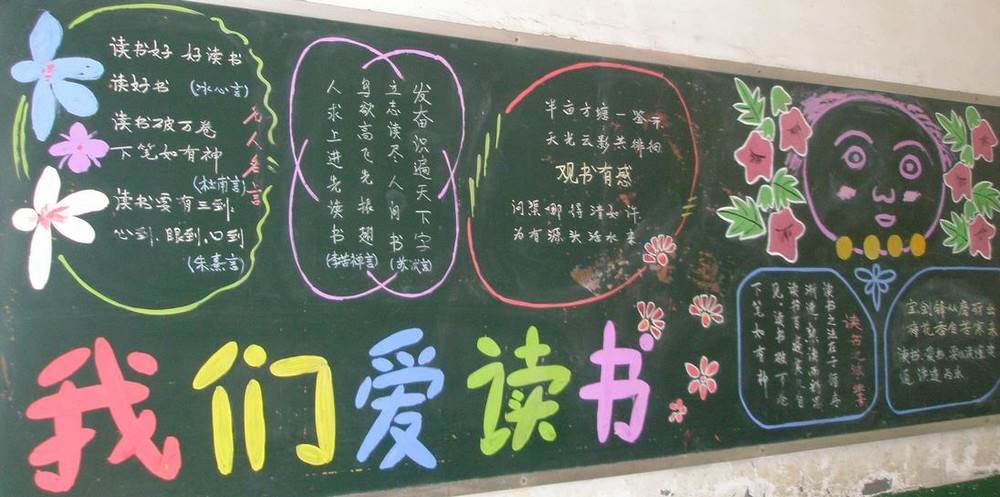 读书好 好读书
读好书 (冰心言)
读书破万卷
下笔如有神
(杜甫言)
读书要有三到:
心到、眼到、口到
(朱熹言)
名人名言
发奋识遍天下字
立志读尽人间书
(苏轼言)
鸟欲高飞先振翅
人求上进先读书
(李苦禅言)
半亩方塘一鉴开
天光云影共徘徊
观书有感
问渠哪得清如许
为有源头活水来
我们爱读书
读书之法
读书之法在于循序
渐进
下笔如有神
宝剑锋从磨砺出
梅花香自苦寒来